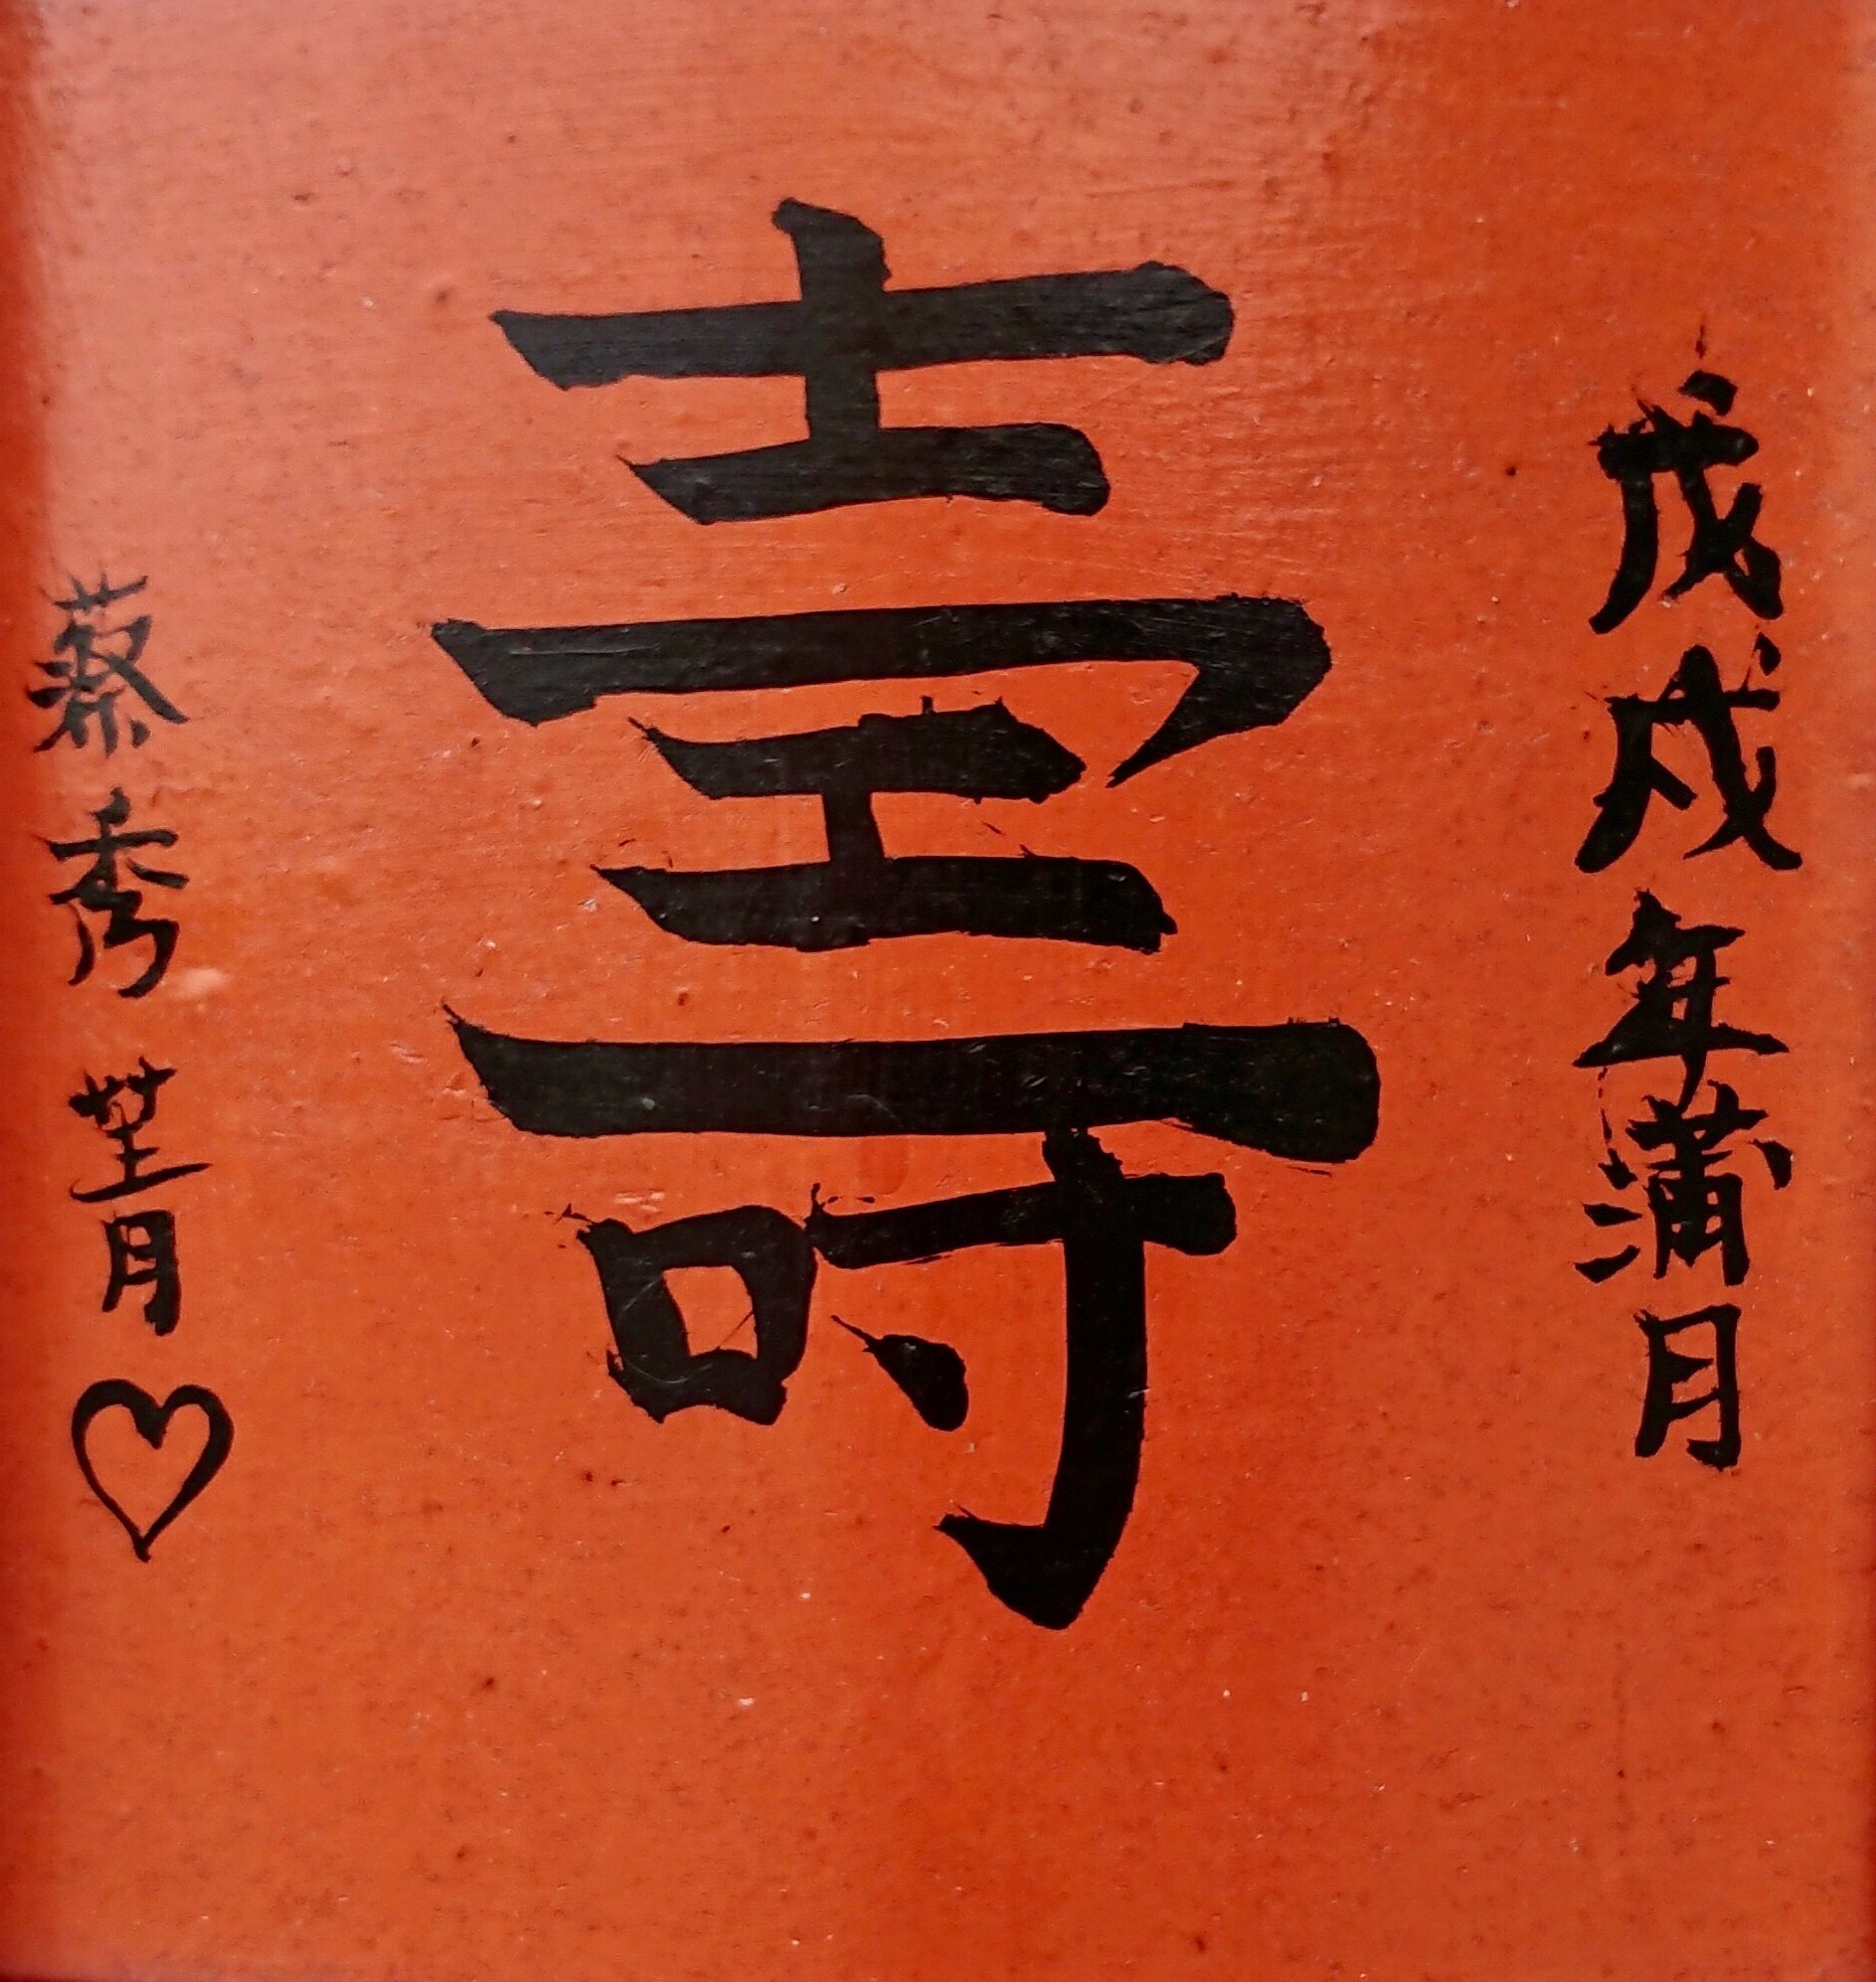 戊戌年蒲月
壽
蔡秀